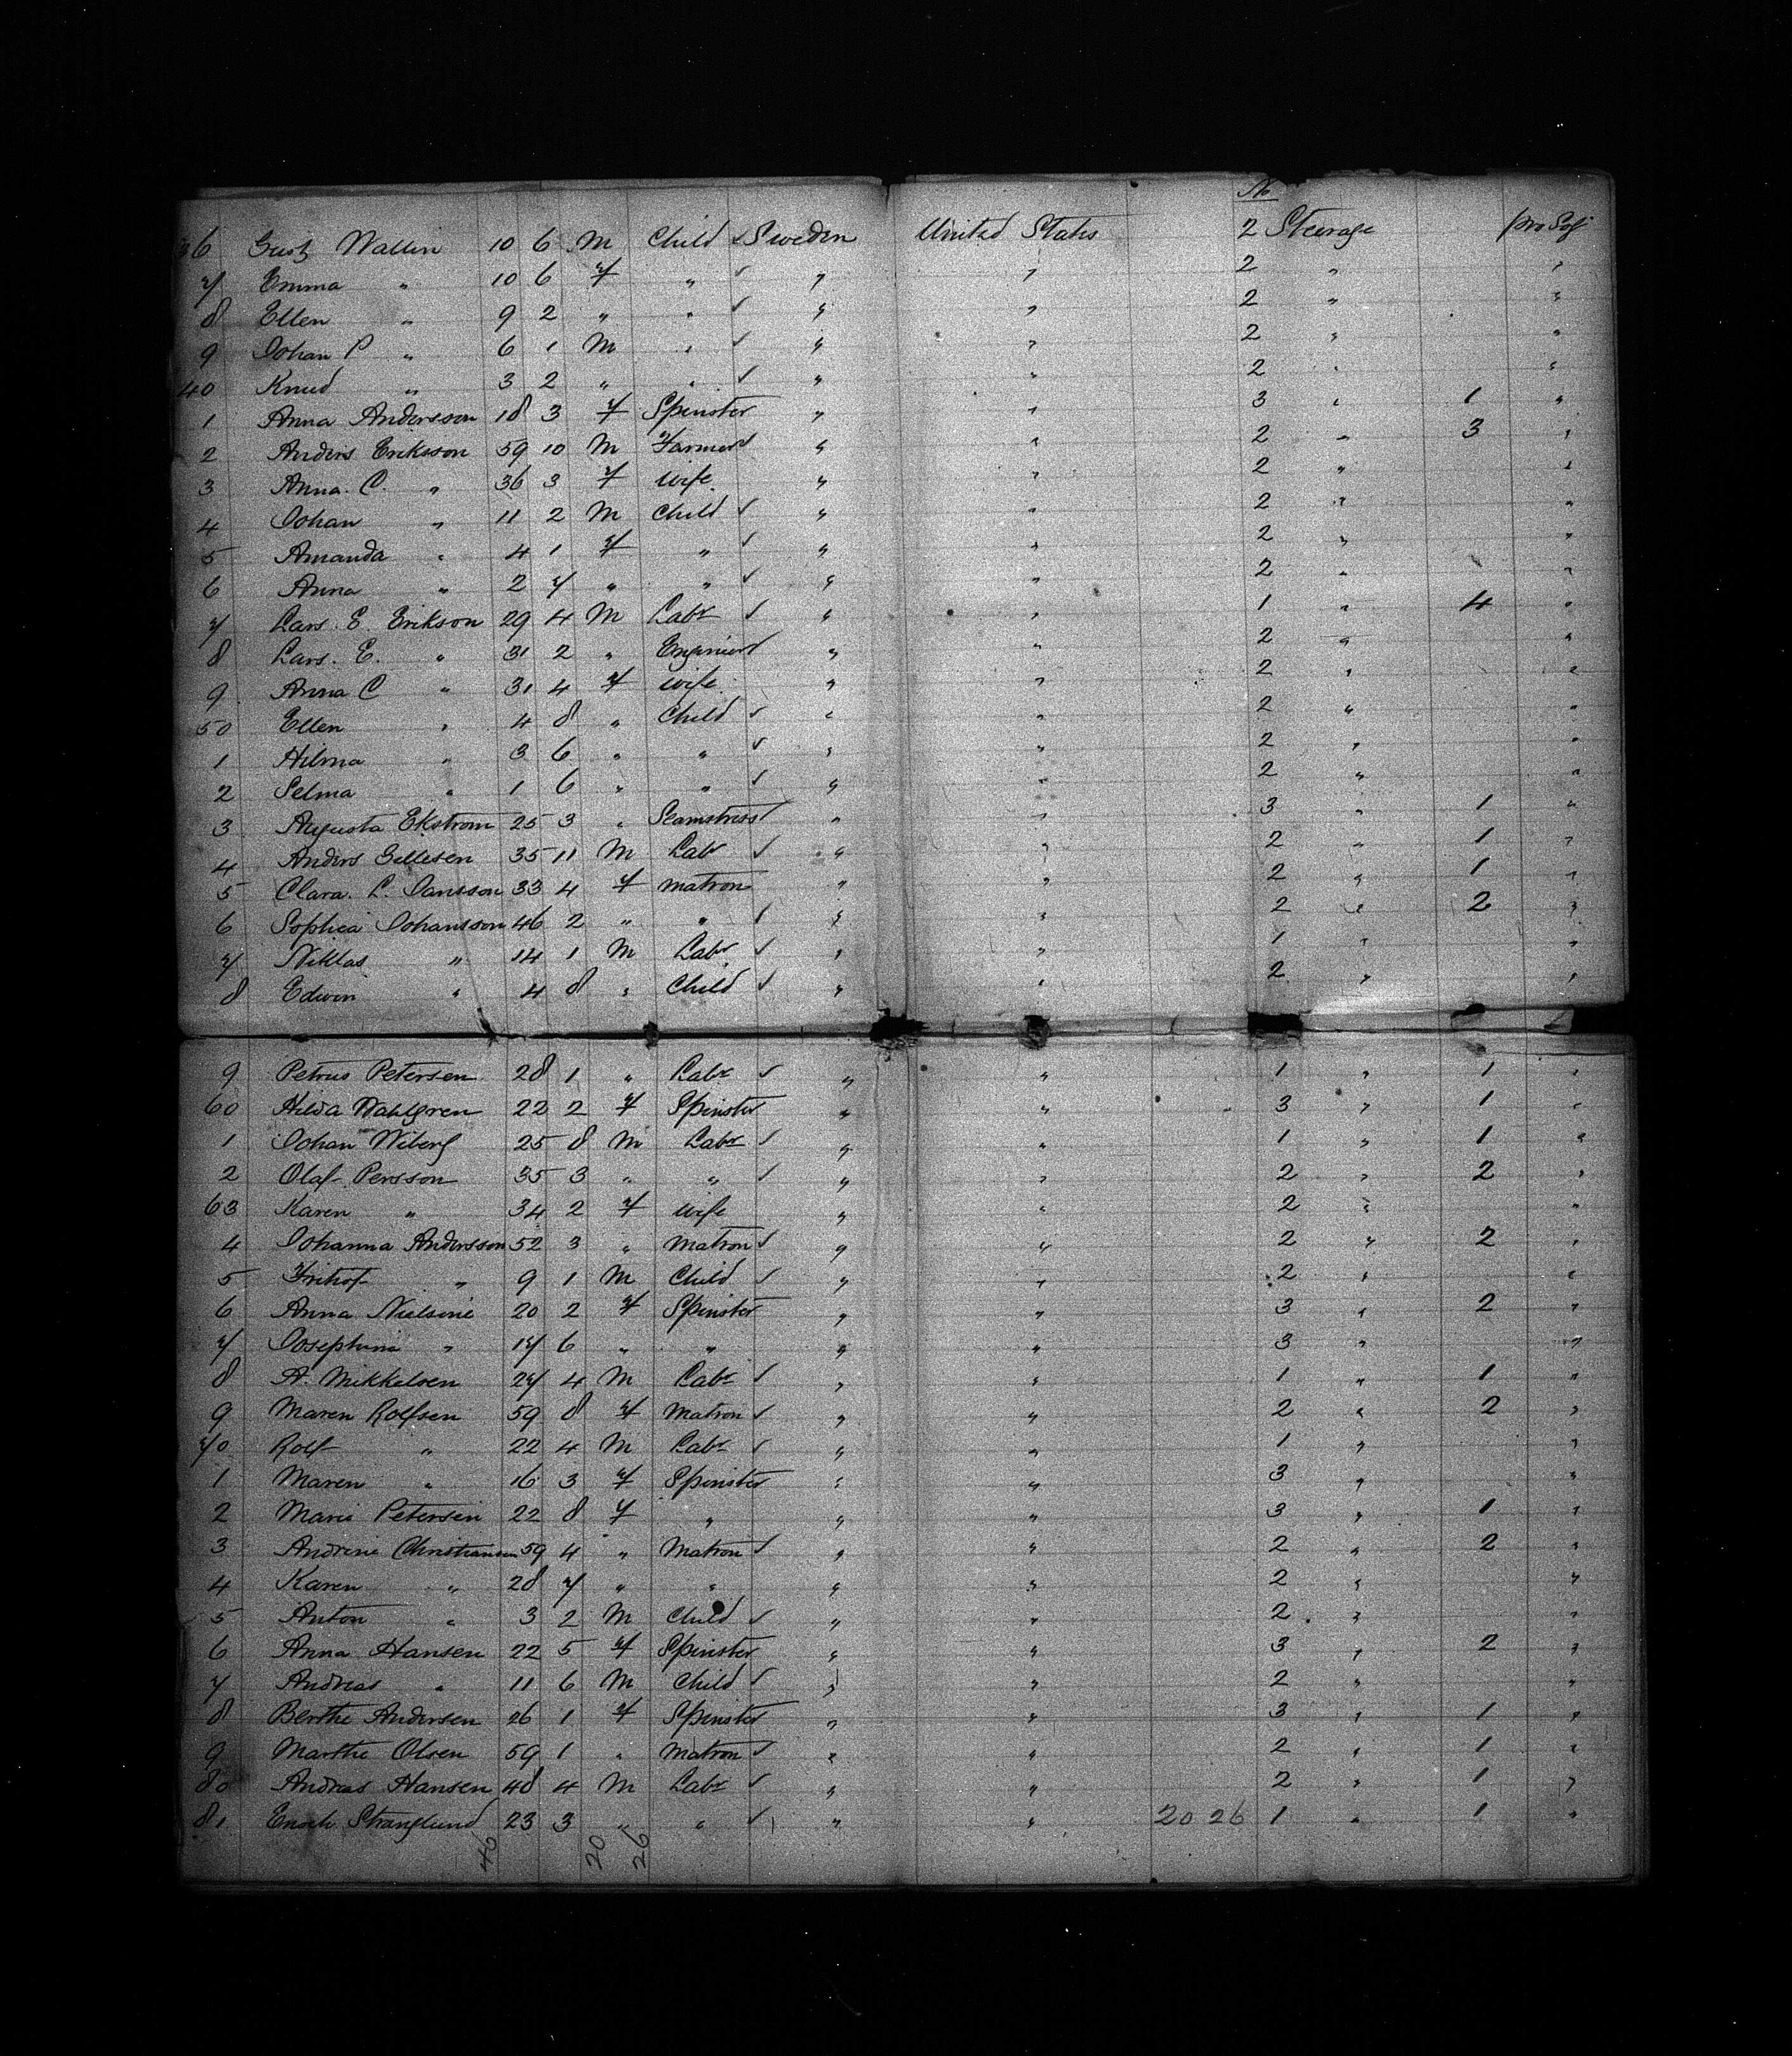 No
36 Gust Wallin 10 6 M Child ✓ Sweden United States 2 Steerage pro Soj
7 Emma " 10 6 F " ✓ " " 2 " "
8 Ellen " 9 2 " " ✓ " " 2 " "
9 Johan P " 6 1 M " ✓ " " 2 " "
40 Knud " 3 2 " " ✓ " " 2 " "
1 Anna Andersson 18 3 F Spinster " " 3 " 1 "
2 Anders Eriksson 59 10 M Farmer ✓ " " 2 " 3 "
3 Anna. C. " 36 3 F Wife " " 2 " "
4 Johan " 11 2 M Child ✓ " " 2 " "
5 Amanda " 4 1 F " ✓ " " 2 " "
6 Anna " 2 7 " " ✓ " " 2 " "
7 Lars. E. Erikson 29 4 M Labr ✓ " " 1 " 4 "
8 Lars. E. " 31 2 " Enginier ✓ " " 2 " "
9 Anna C " 31 4 F Wife " " 2 " "
50 Ellen " 4 8 " Child ✓ " " 2 " "
1 Hilma " 3 6 " " ✓ " " 2 " "
2 Selma " 1 6 " " ✓ " " 2 " "
3 Augusta Ekstrom 25 3 " Seamstress ✓ " " 3 " 1 "
4 Anders Gellesen 35 11 M Labr ✓ " " 2 " 1 "
5 Clara. L. Jansson 33 4 F Matron " " 2 " 1 "
6 Sophia Johansson 46 2 " " ✓ " " 2 " 2 "
7 Niklas " 14 1 M Labr ✓ " " 1 " "
8 Edwin " 4 8 " Child ✓ " " 2 " "
9 Petrus Petersen 28 1 " Labr ✓ " " 1 " 1 "
60 Hilda Wahlgren 22 2 F Spinster " " 3 " 1 "
1 Johan Wiberg 25 8 M Labr ✓ " " 1 " 1 "
2 Olaf Persson 35 3 " " ✓ " " 2 " 2 "
63 Karen " 34 2 F Wife " " 2 " "
4 Johanna Andersson 52 3 " Matron ✓ " " 2 " 2 "
5 Frithof " 9 1 M Child ✓ " " 2 " "
6 Anna Nielsine 20 2 F Spinster " " 3 " 2 "
7 Josephine " 17 6 " " " " 3 " "
8 A. Mikkelsen 27 4 M Labr ✓ " " 1 " 1 "
9 Maren Rolfsen 59 8 F Matron ✓ " " 2 " 2 "
70 Rolf " 22 4 M Labr ✓ " " 1 " "
1 Maren " 16 3 F Spinster " " 3 " "
2 Marie Petersen 22 8 F " " " 3 " 1 "
3 Andrine Christiansen 59 4 " Matron ✓ " " 2 " 2 "
4 Karen " 28 7 " " " " 2 " "
5 Anton " 3 2 M Child ✓ " " 2 " "
6 Anna Hansen 22 5 F Spinster " " 3 " 2 "
7 Andreas " 11 6 M Child ✓ " " 2 " "
8 Berthe Andersen 26 1 F Spinster " " 3 " 1 "
9 Marthe Olsen 59 1 " Matron ✓ " " 2 " 1 "
80 Andreas Hansen 48 4 M Labr ✓ " " 2 " 1 "
81 Enoch Stranglund 23 3 " " ✓ " " 20 26 1 " 1 "
46 20 26